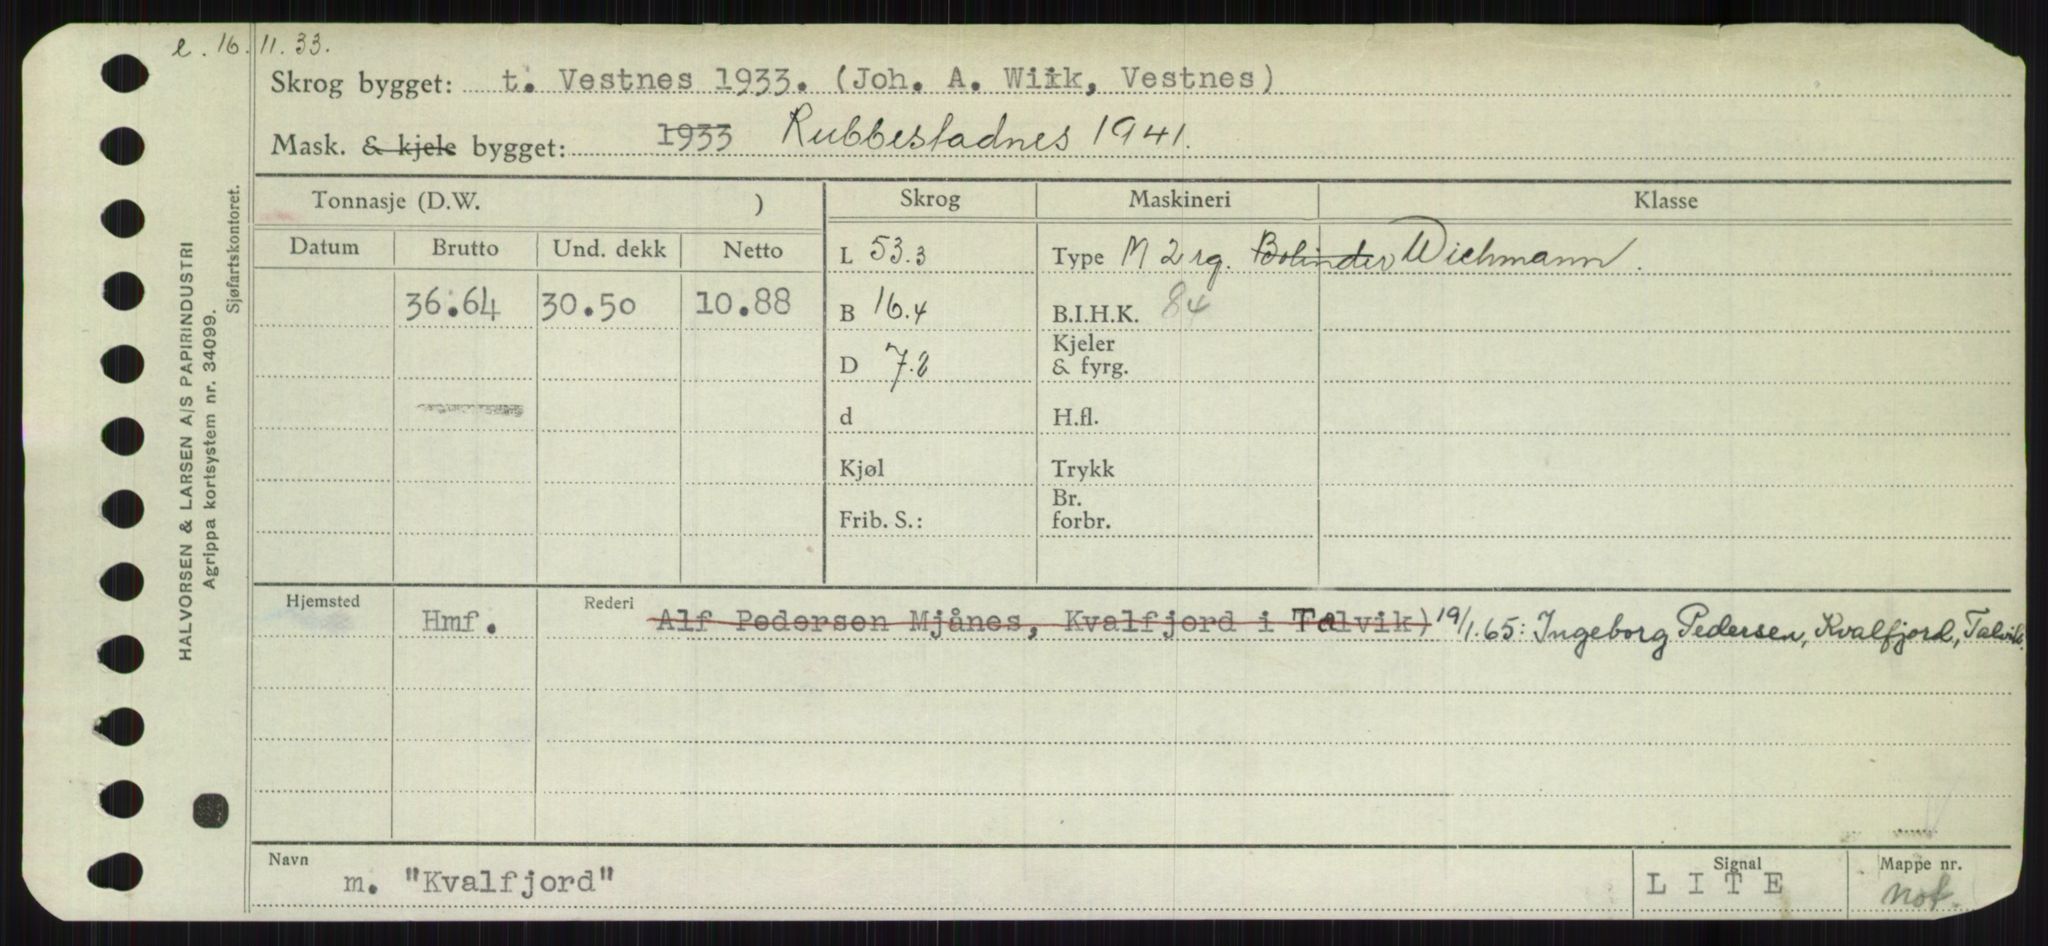 e. 16.11.33.
Skrog bygget: t. Vestnes 1933. (Joh. A. Wiik, Vestnes)
Mask. & kjele bygget: 1933 Rubbestadnes 1941.
Tonnasje (D.W. ) Skrog Maskineri Klasse
Datum Brutto Und. dekk Netto L 53.3 Type M 2 rg. Bolinder Wichmann.
36.64 30.50 10.88 B 16.4 B.I.H.K. 84
Kjeler
D 7.8 & fyrg.
d H.fl.
Kjøl Trykk
Br.
Frib. S.: forbr.
Hjemsted Hmf. Rederi Alf Pedersen Mjånes, Kvalfjord i Talvik) 19/1.65: Ingeborg Pedersen, Kvalfjord, Talvik.
Navn Signal Mappe nr.
m. "Kvalfjord" L I T E not.
HALVORSEN & LARSEN A/S PAPIRINDUSTRI
Agrippa kortsystem nr. 34099.
Sjøfartskontoret.